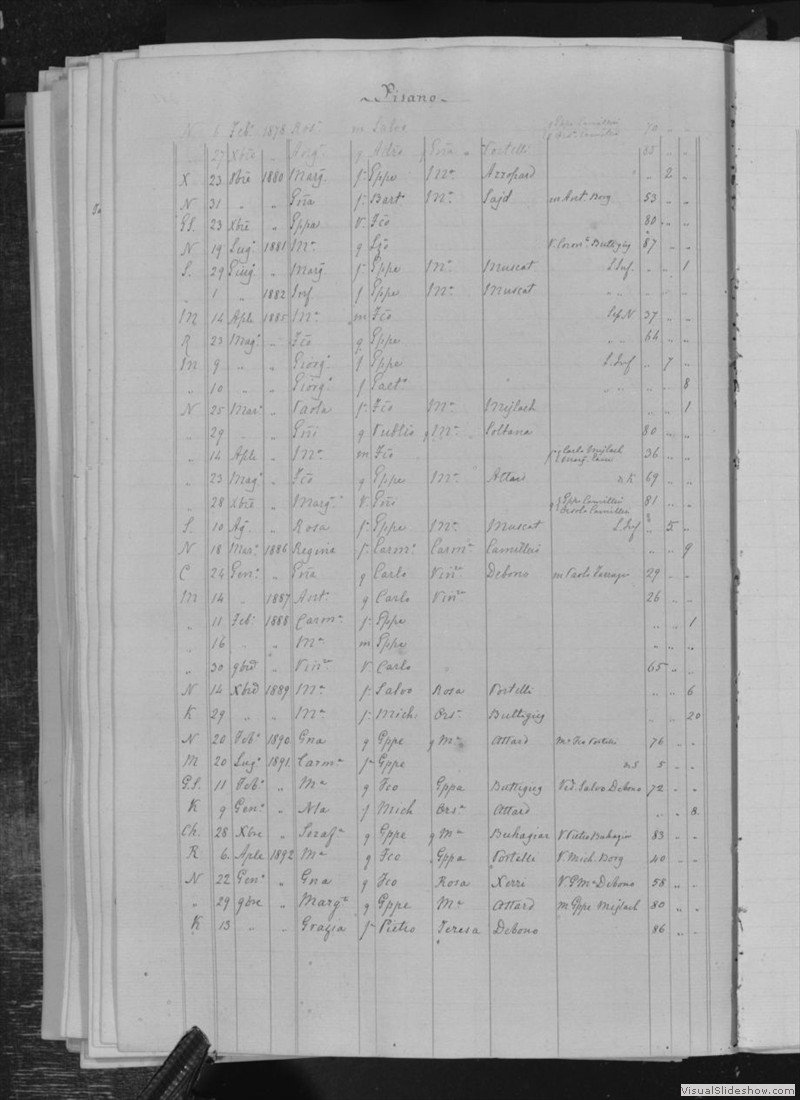 ~ Pisano ~
N 6 Feb. 1878 Ros. m Salvo 70 " "
" 27 Xbre " Ang. g Portelli 85 " "
X 23 8bre 1880 Marg. f. Gppe Ma. Azzopard " 2 "
N 31 " " Gña f. Bart. Ma. Sajd m Ant. Borg 53 " "
GS. 23 Xbre " Gppa V. Fco 80 " "
N 19 Lug. 1881 Ma. g V. Buttigig 87 " "
S. 29 Giug. " Marg. f. Gppa Ma. Muscat S. Inf. " " 1
" 1 " 1882 Inf f Gppa Ma. Muscat " " " "
M 14 Aple 1885 Ma. m Fco 37 " "
R 23 Mag. " Fco g Gppe " " 64 " "
M 9 " " Giorg. f Gppe S. Inf " 7 "
" 10 " " Giorg. f Gaet. " " " " 8
N 25 Mar. " Paola f. Fco Ma. Mejlach " " 1
" 29 " " g Publio g Ma. Soltana 80 " "
" 14 Aple " Ma. m Fco Carlo Mejlach 36 " "
" 23 Mag. " Fco g Gppe Ma. Attard n K 69 " "
" 28 Xbre " Marg. V. Gppe Camilleri 81 " "
S. 10 Ag. " Rosa f. Gppe Ma. Muscat S. Inf " 5 "
N 18 Mar. 1886 Regina f. Carm. Carma. Camilleri " " 9
C 24 Gen. " Gña g Carlo Vinc. Debono m Paolo 29 " "
M 14 " 1887 Ant. g Carlo Vinc. 26 " "
" 11 Feb. 1888 Carm. f. Gppe " " 1
" 16 " " Ma. m Gppe " " "
" 30 9bre " Vinc. V. Carlo 65 " "
N 14 Xbre 1889 Ma. f. Salvo Rosa Portelli " " 6
K 29 " " Ma. f. Mich. Ors. Buttigieg " " 20
N 20 Feb. 1890 Gna g Gppe g Ma. Attard m Fco Portelli 76 " "
M 20 Lug. 1891 Carma. f. Gppe n S 5 " "
GS. 11 Feb. " Ma g Fco Gppa Buttigieg Ved. Salvo Debono 72 " "
K 9 Gen. " Nla f Mich Orsa Attard " " 8
Ch. 28 Xbre " Serafa g Gppe g Ma Buhagiar V Pietro Buhagiar 83 " "
R 6 Aple 1892 Ma g Fco Gppa Portelli V. Mich. Borg 40 " "
N 22 Gen. " Gna g Fco Rosa Xerri V. G Ma Debono 58 " "
" 29 9bre " Marga g Gppe Ma Attard m Gppe Mejlach 80 " "
K 13 " " Grazia f. Pietro Teresa Debono 86 " "
VisualSlideshow.com